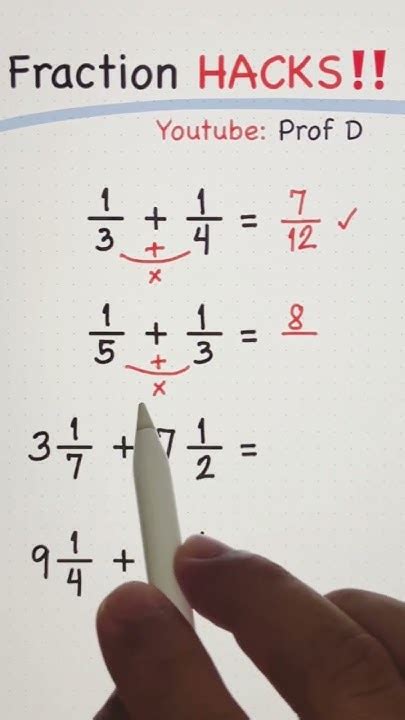 Fraction HACKS!!
Youtube: Prof D
1/3 + 1/4 = 7/12 ✓
+
×
1/5 + 1/3 = 8/
+
×
3 1/7 + 7 1/2 =
9 1/4 +